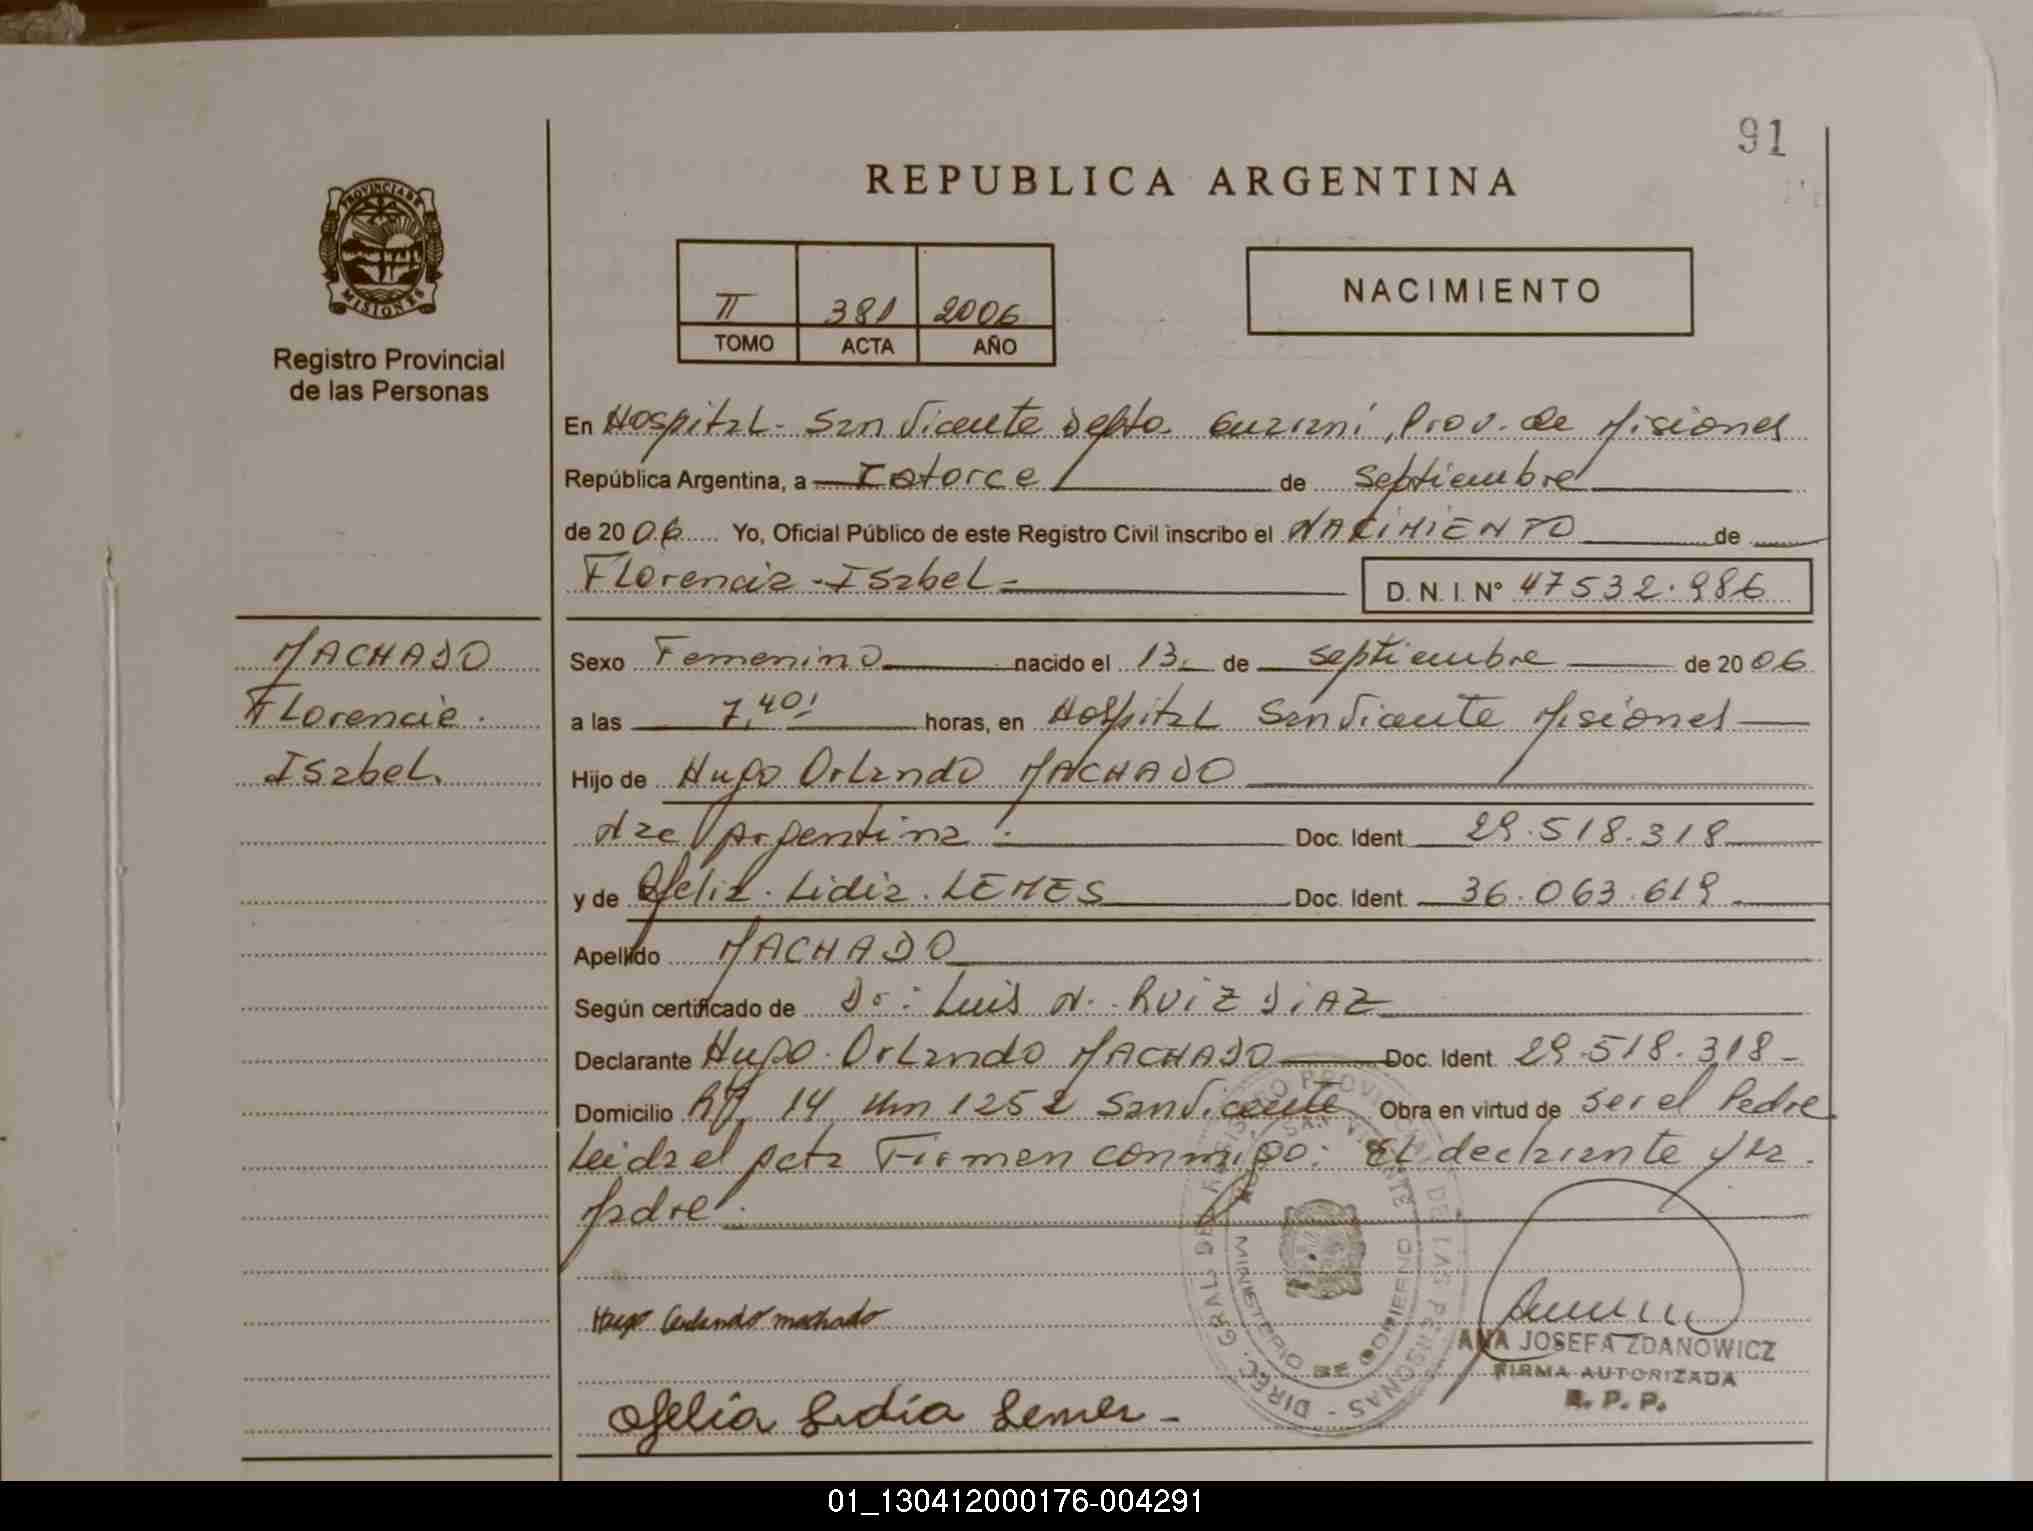 91
REPUBLICA ARGENTINA
PROVINCIA DE
MISIONES
Registro Provincial
de las Personas
II 381 2006
TOMO ACTA AÑO
NACIMIENTO
En Hospital San Vicente Depto. Guaraní, Prov. de Misiones
República Argentina, a Catorce de Septiembre
de 2006 Yo, Oficial Público de este Registro Civil inscribo el NACIMIENTO de
Florencia Isabel
D.N.I. N° 47532.986
MACHADO
Florencia
Isabel
Sexo Femenino nacido el 13 de septiembre de 2006
a las 7,40 horas, en Hospital San Vicente Misiones
Hijo de Hugo Orlando MACHADO
Nac Argentina Doc. Ident. 29.518.318
y de Ofelia Lidia LEMES Doc. Ident. 36.063.619
Apellido MACHADO
Según certificado de Dr: Luis N. RUIZ DIAZ
Declarante Hugo Orlando MACHADO Doc. Ident. 29.518.318
Domicilio 14 Km 1252 San Vicente Obra en virtud de ser el Padre
Leida el acta Firman conmigo: El declarante y la
Madre.
DIREC. GRAL. DEL REGISTRO PROVINCIAL DE LAS PERSONAS
SAN VICENTE
MINISTERIO DE GOBIERNO
Hugo Orlando machado
ANA JOSEFA ZDANOWICZ
FIRMA AUTORIZADA
R. P. P.
Ofelia Lidia Lemes
01_130412000176-004291